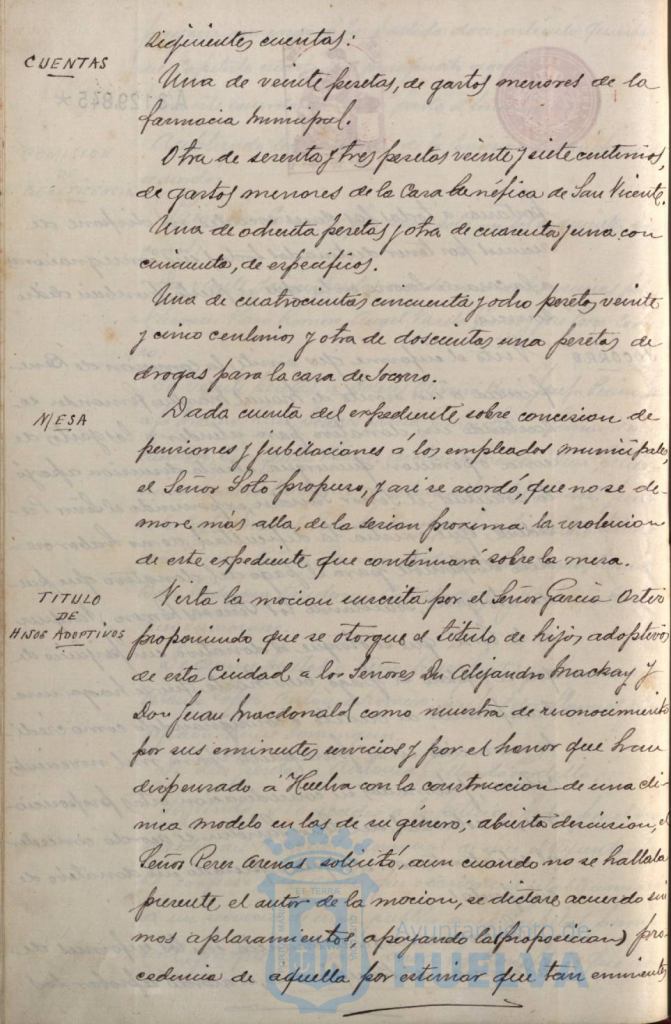 siguientes cuentas:
CUENTAS
Una de veinte pesetas, de gastos menores de la
farmacia municipal.
Otra de sesenta y tres pesetas veinte y siete centimos,
de gastos menores de la Casa benéfica de San Vicente.
Una de ochenta pesetas y otra de cuarenta y una con
cincuenta, de especificos.
Una de cuatrocientas cincuenta y ocho pesetas veinte
y cinco centimos y otra de doscientas una pesetas de
drogas para la casa de Socorro.
MESA
Dada cuenta del expediente sobre concesion de
pensiones y jubilaciones á los empleados municipales,
el Señor Soto propuso, y asi se acordó, que no se de-
more más alla, de la sesion proxima la resolucion
de este expediente que continuará sobre la mesa.
TITULO
DE
HIJOS ADOPTIVOS
Vista la mocion suscrita por el Señor Garcia
proponiendo que se otorgue el titulo de hijos adoptivos
de esta Ciudad a los Señores Dn Alejandro Mackay y
Don Juan Macdonald como muestra de reconocimiento
por sus eminentes servicios y por el honor que han
dispensado á Huelva con la construccion de una cli-
nica modelo en las de su género; abierta discusion, el
Señor Perez Arenas solicitó, aun cuando no se hallaba
presente el autor de la mocion, se dictase acuerdo sin
mas aplazamientos, apoyando la (proposicion) pro-
cedencia de aquella por estimar que tan eminentes
Ayuntamiento de
HUELVA